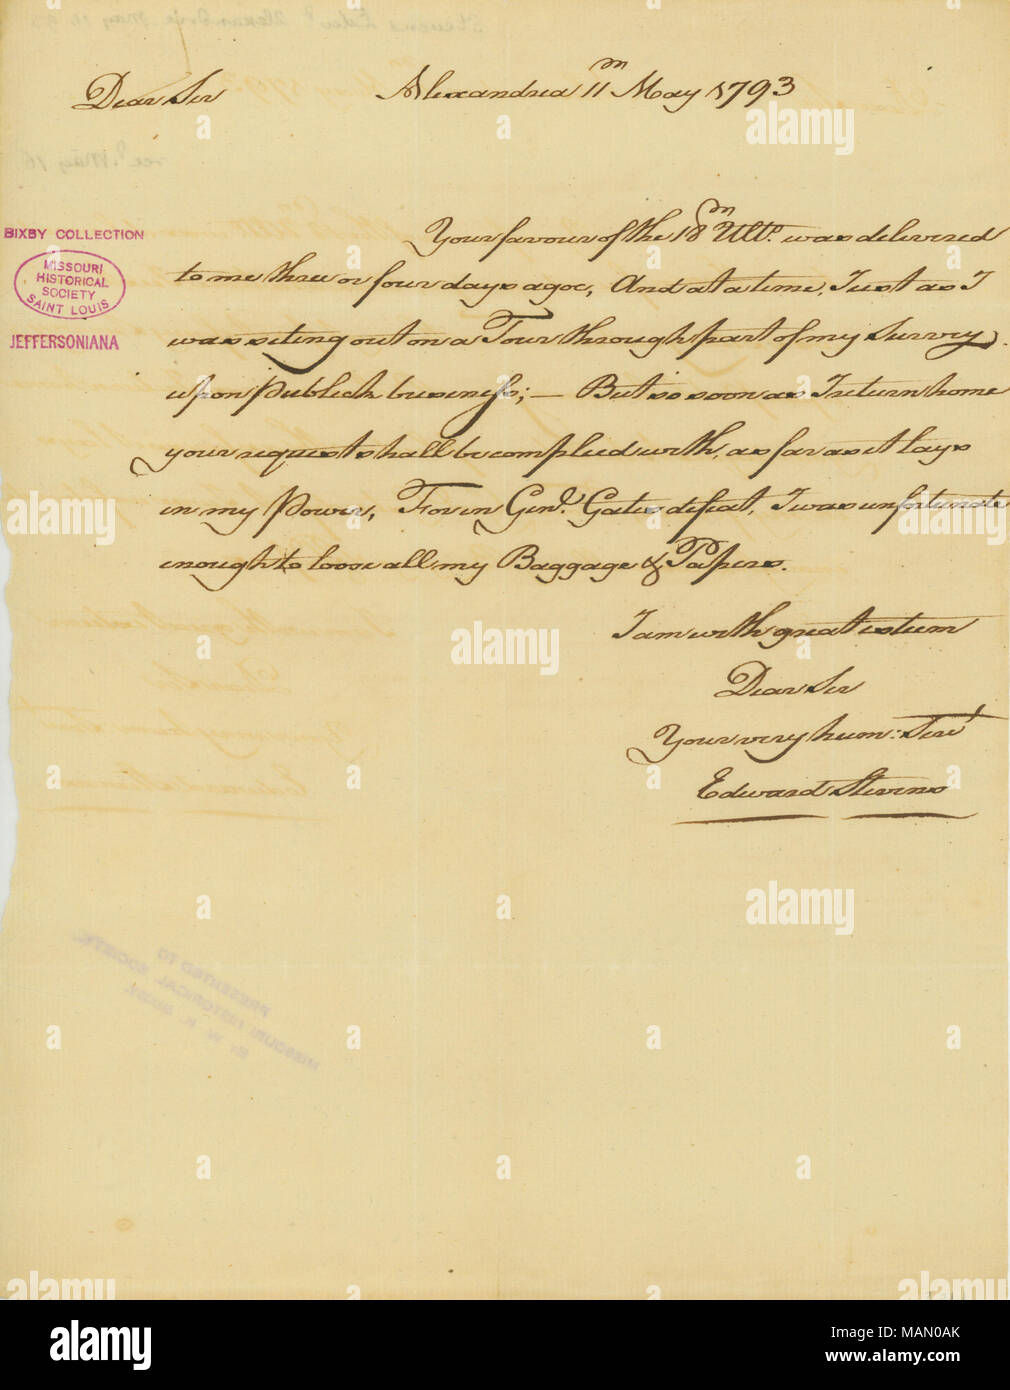 Dear Sir Alexandria 11th May 1793
BIXBY COLLECTION
MISSOURI
HISTORICAL
SOCIETY
SAINT LOUIS
JEFFERSONIANA
Your favour of the 18th Ulto. was delivered
to me three or four days agoe, And at a time, Just as I
was seting out on a Tour through part of my Survey
upon Publick business; — But so soon as I return home
your request shall be complied with, as far as it lays
in my Power, For in Genl. Gates defeat, I was unfortunate
enough to loose all my Baggage & Papers.
I am with great esteem
Dear Sir
Your very hum: Servt
Edward Stevens
PRESENTED TO
MISSOURI HISTORICAL SOCIETY
By W. K. BIXBY.
alamy
Image ID: MAN0AK
www.alamy.com